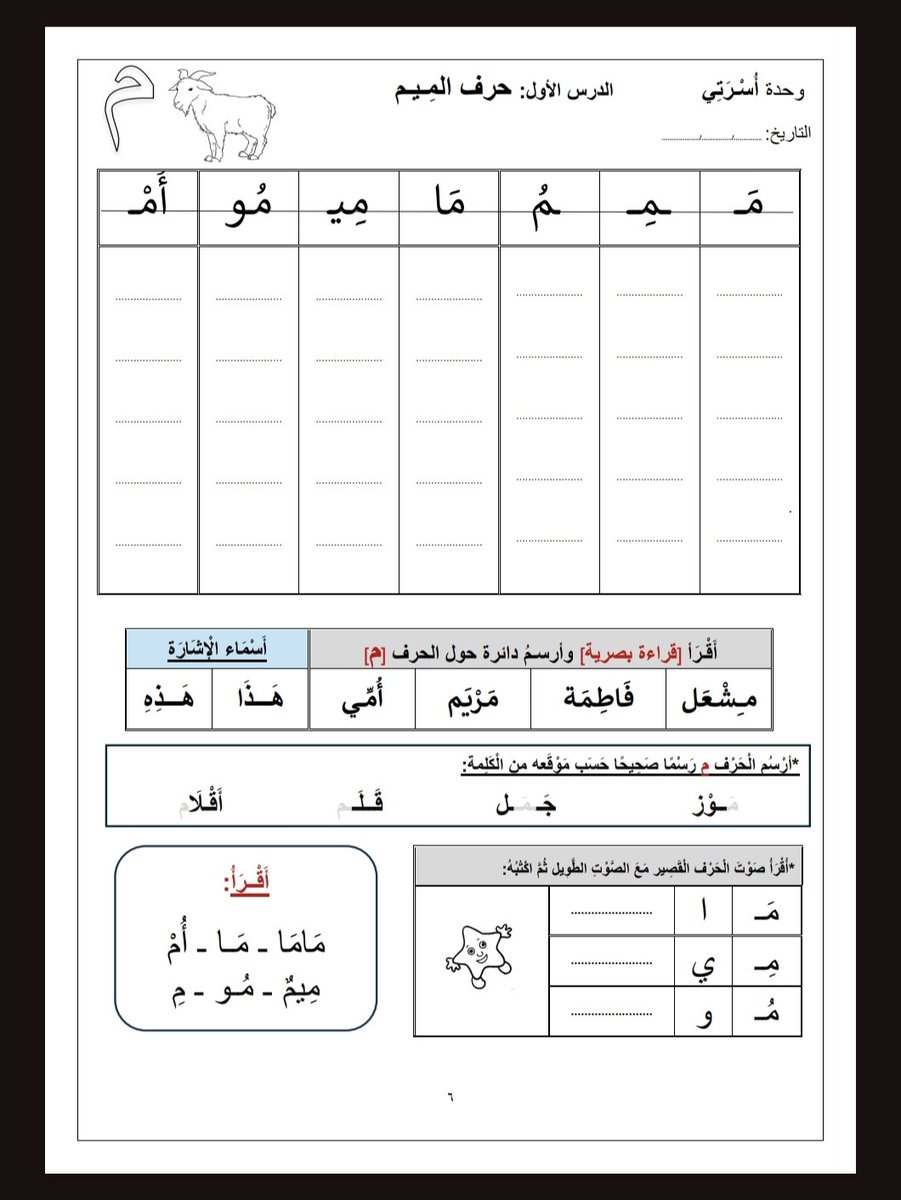 وحدة أُسْرَتِي الدرس الأول: حرف المِـيـم م
التاريخ: ............/............/............
مَـ ـمِـ ـمُ مَا مِيـ مُو أَمْـ
أَقْـرَأ [قراءة بصرية] وأرسـمُ دائرة حول الحرف [م] أَسْمَاء الْإِشَارَة
مـِشْعَل فَاطِمَة مَرْيَم أُمِّي هَــذَا هَــذِهِ
*أرْسُم الْحَرْف م رَسْمًا صَحِيحًا حَسَب مَوْقَعه من الْكَلِمة:
مَــوْز جَـمَـل قَـلَـم أَقْـلَام
*أقْرَأ صَوْتَ الْحَرْف الْقَصِير مَعَ الصَّوْتِ الطَّوِيل ثُمَّ اكْتُبْهُ:
مَـ ا ........................
مِـ ي ........................
مُـ و ........................
أَقْـرَأُ:
مَامَا ـ مَـا ـ أُمْ
مِيمٌ ـ مُـو ـ مِ
٦